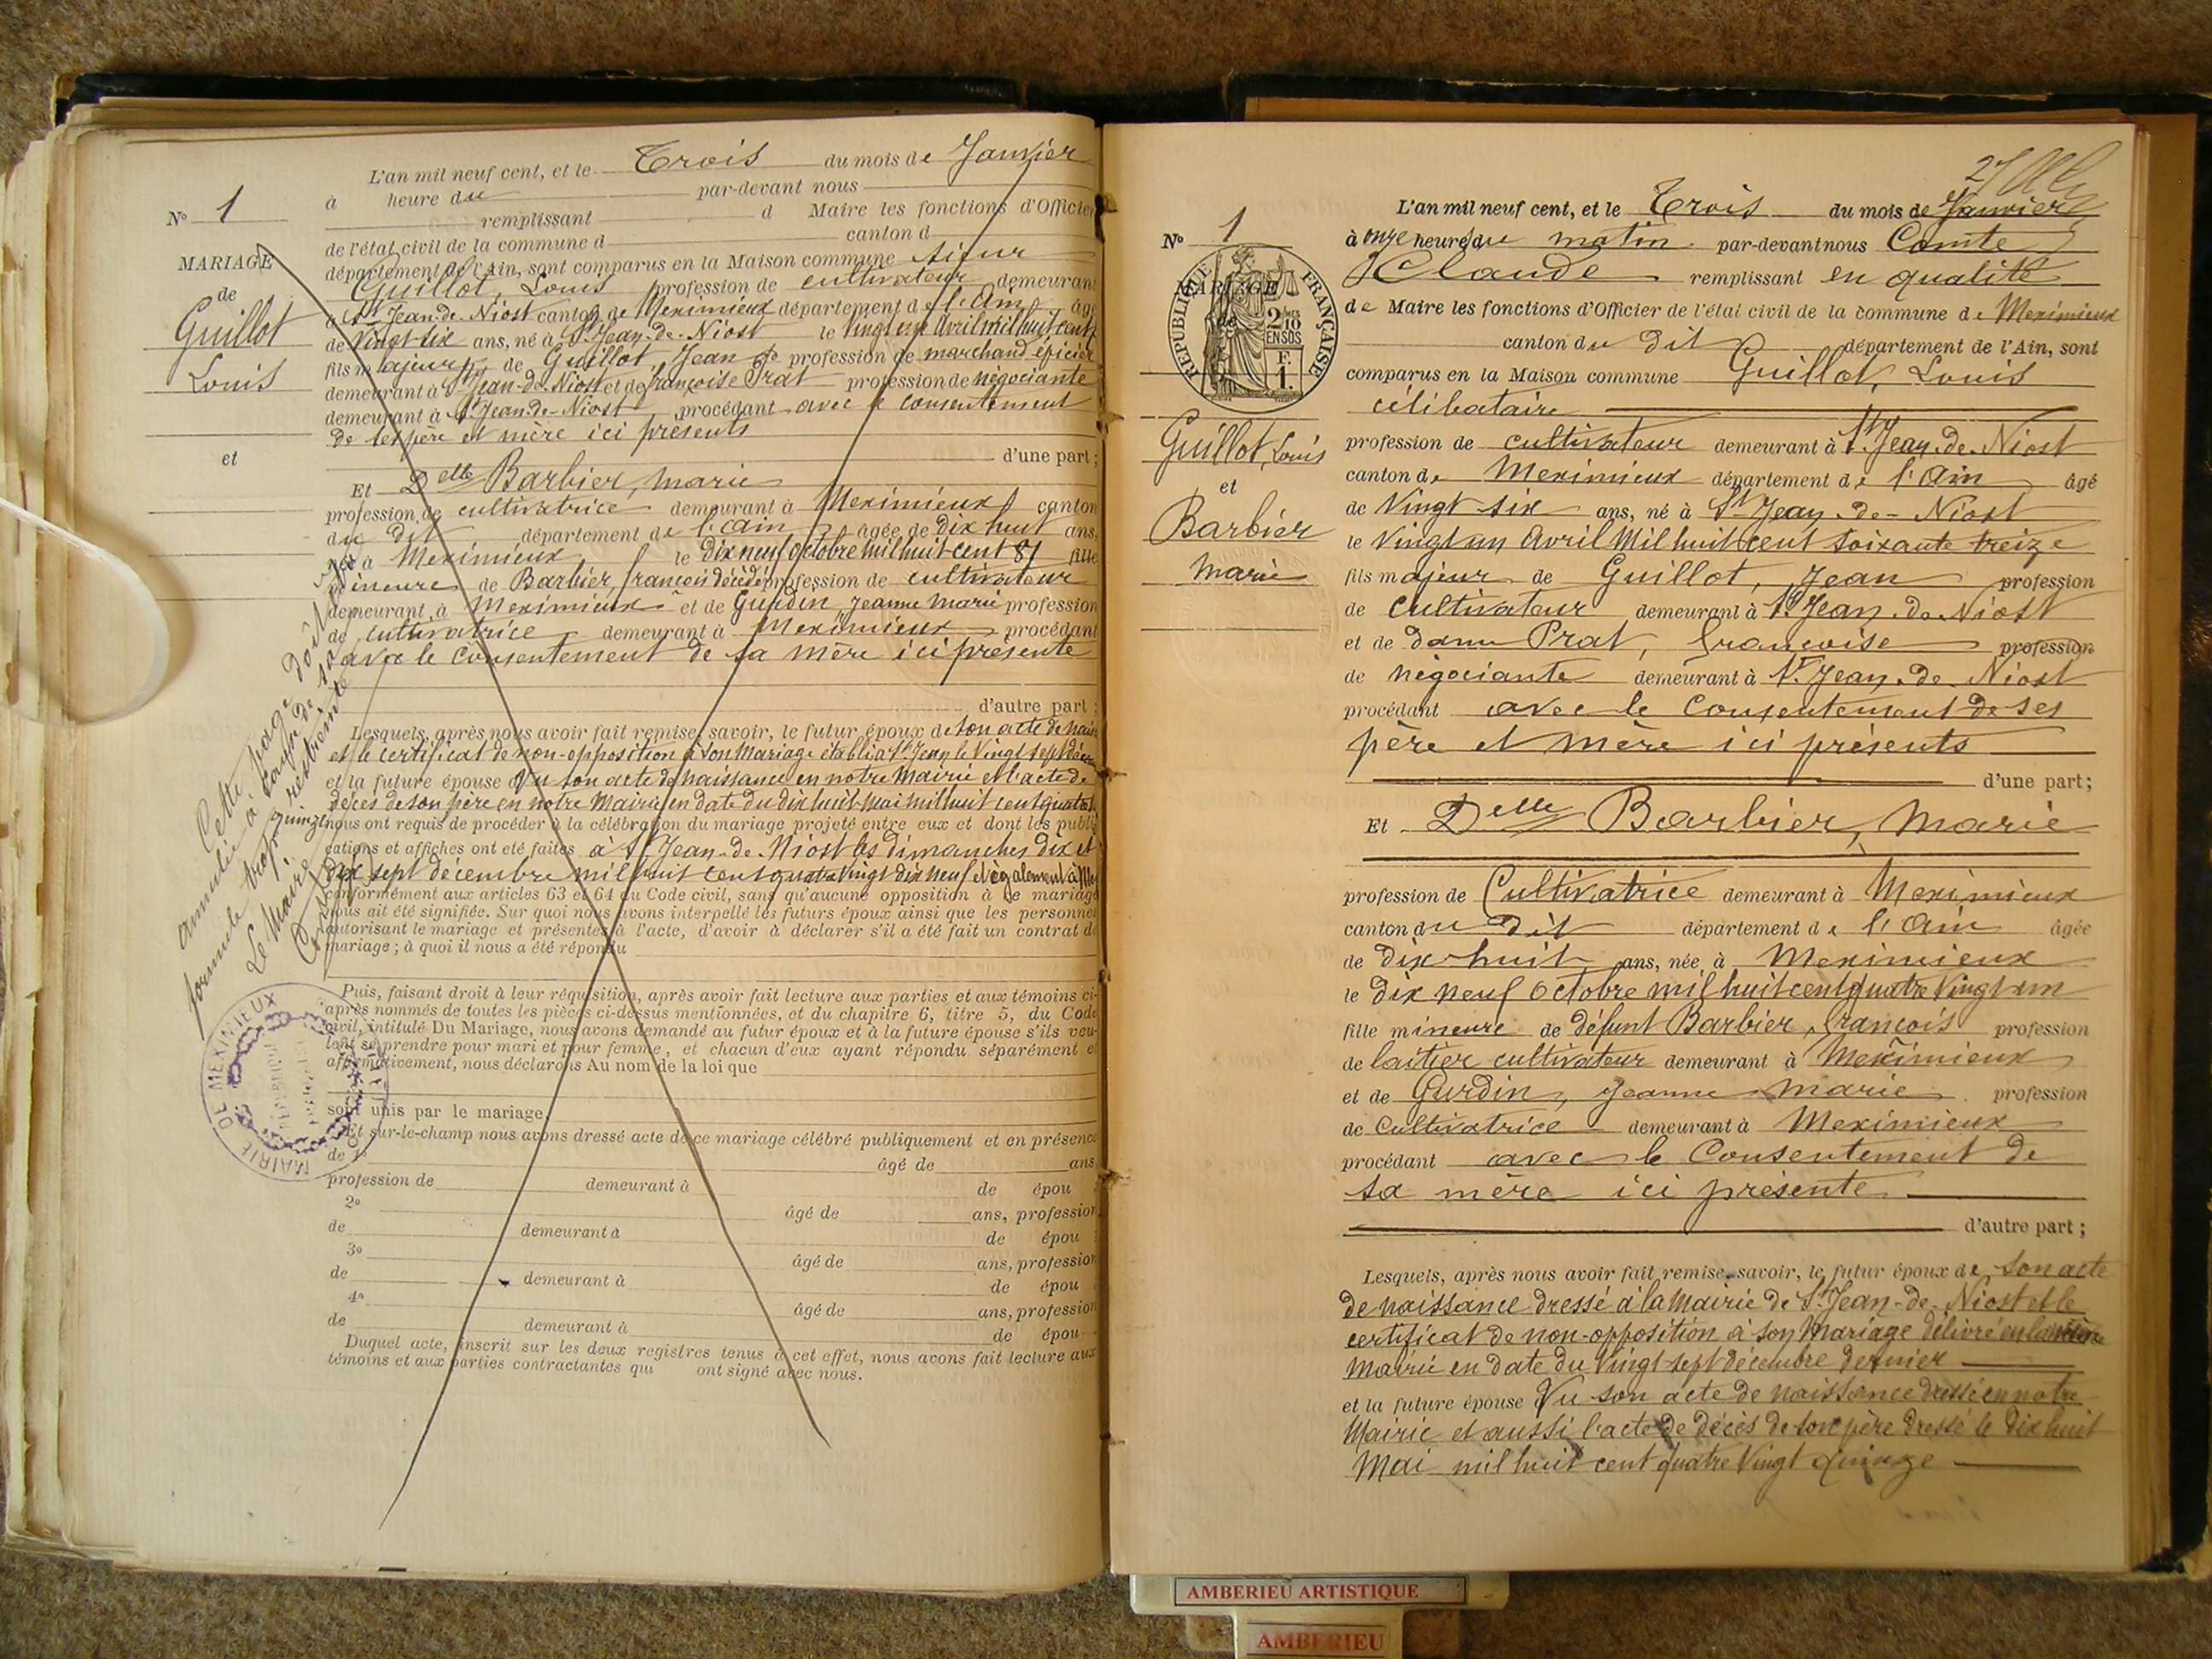 L'an mil neuf cent, et le Trois du mois de Janvier
à heure du par-devant nous
remplissant d Maire les fonctions d'Officier
de l'état civil de la commune d canton d
département de l'Ain, sont comparus en la Maison commune sieur
Guillot, Louis profession de cultivateur demeurant
à St Jean-de-Niost canton de Meximieux département de l'Ain âgé
de Vingt-six ans, né à St Jean-de-Niost le Vingt un Avril mil huit cent
fils majeur de Guillot, Jean profession de marchand épicier
demeurant à St Jean-de-Niost et de Françoise Prat profession de négociante
demeurant à St Jean-de-Niost procédant avec le consentement
de ses père et mère ici présents
d'une part;
Et Delle Barbier, Marie
profession de cultivatrice demeurant à Meximieux canton
du dit département de l'Ain âgée de Dix huit ans,
née à Meximieux le Dix neuf Octobre mil huit cent 81 fille
mineure de Barbier, François décédé profession de cultivateur
demeurant à Meximieux et de Gurdin Jeanne Marie profession
de cultivatrice demeurant à Meximieux procédant
avec le consentement de sa mère ici présente
d'autre part;
Lesquels, après nous avoir fait remise, savoir, le futur époux de son acte de
et le certificat de non-opposition à son Mariage établi à St Jean le Vingt sept
et la future épouse Vu son acte de naissance en notre Mairie et l'acte de
décès de son père en notre Mairie en date du dix huit Mai mil huit cent
quinze nous ont requis de procéder à la célébration du mariage projeté entre eux et dont les publi
cations et affiches ont été faites à St Jean-de-Niost les dimanches dix et
dix sept décembre mil huit cent quatre vingt dix neuf et également à
conformément aux articles 63 et 64 du Code civil, sans qu'aucune opposition à ce mariage
nous ait été signifiée. Sur quoi nous avons interpellé les futurs époux ainsi que les personnes
autorisant le mariage et présentes à l'acte, d'avoir à déclarer s'il a été fait un contrat de
mariage; à quoi il nous a été répondu
Puis, faisant droit à leur réquisition, après avoir fait lecture aux parties et aux témoins ci-
après nommés de toutes les pièces ci-dessus mentionnées, et du chapitre 6, titre 5, du Code
civil, intitulé Du Mariage, nous avons demandé au futur époux et à la future épouse s'ils veu-
lent se prendre pour mari et pour femme, et chacun d'eux ayant répondu séparément et
affirmativement, nous déclarons Au nom de la loi que
sont unis par le mariage.
Et sur-le-champ nous avons dressé acte de ce mariage célébré publiquement et en présence
de 1° âgé de ans
profession de demeurant à de épou
2° âgé de ans, profession
de demeurant à de épou
3° âgé de ans, profession
de demeurant à de épou
4° âgé de ans, profession
de demeurant à de épou
Duquel acte, inscrit sur les deux registres tenus à cet effet, nous avons fait lecture aux
témoins et aux parties contractantes qui ont signé avec nous.
N° 1
MARIAGE
de
Guillot
Louis
et
Cette page doit
annulée à raison de
formule trop restreinte
Le Maire
MAIRIE DE MEXIMIEUX
L'an mil neuf cent, et le Trois du mois de Janvier
à onze heures du matin par-devant nous Comte
Claude remplissant en qualité
de Maire les fonctions d'Officier de l'état civil de la commune de Meximieux
canton du dit département de l'Ain, sont
comparus en la Maison commune Guillot, Louis
célibataire
profession de cultivateur demeurant à St Jean-de-Niost
canton de Meximieux département de l'Ain âgé
de Vingt-six ans, né à St Jean-de-Niost
le Vingt un Avril Mil huit cent soixante treize
fils majeur de Guillot, Jean profession
de cultivateur demeurant à St Jean-de-Niost
et de dame Prat, Françoise profession
de négociante demeurant à St Jean-de-Niost
procédant avec le Consentement de ses
père et mère ici présents
d'une part;
Et Delle Barbier, Marie
profession de Cultivatrice demeurant à Meximieux
canton du Dit département de l'Ain âgée
de Dix-huit ans, née à Meximieux
le Dix neuf Octobre mil huit cent quatre Vingt un
fille mineure de défunt Barbier, François profession
de laitier cultivateur demeurant à Meximieux
et de Gurdin, Jeanne Marie profession
de Cultivatrice demeurant à Meximieux
procédant avec le Consentement de
sa mère ici présente
d'autre part;
Lesquels, après nous avoir fait remise, savoir, le futur époux de son acte
de naissance dressé à la Mairie de St Jean-de-Niost et le
certificat de non-opposition à son Mariage délivré en la même
Mairie en date du Vingt sept décembre dernier
et la future épouse Vu son acte de naissance dressé en notre
Mairie et aussi l'acte de décès de son père dressé le Dix huit
Mai mil huit cent quatre Vingt quinze
N° 1
MARIAGE
de
RÉPUBLIQUE FRANÇAISE
2/10
EN SUS
F.
1.
Guillot, Louis
et
Barbier
Marie
AMBERIEU ARTISTIQUE
AMBERIEU